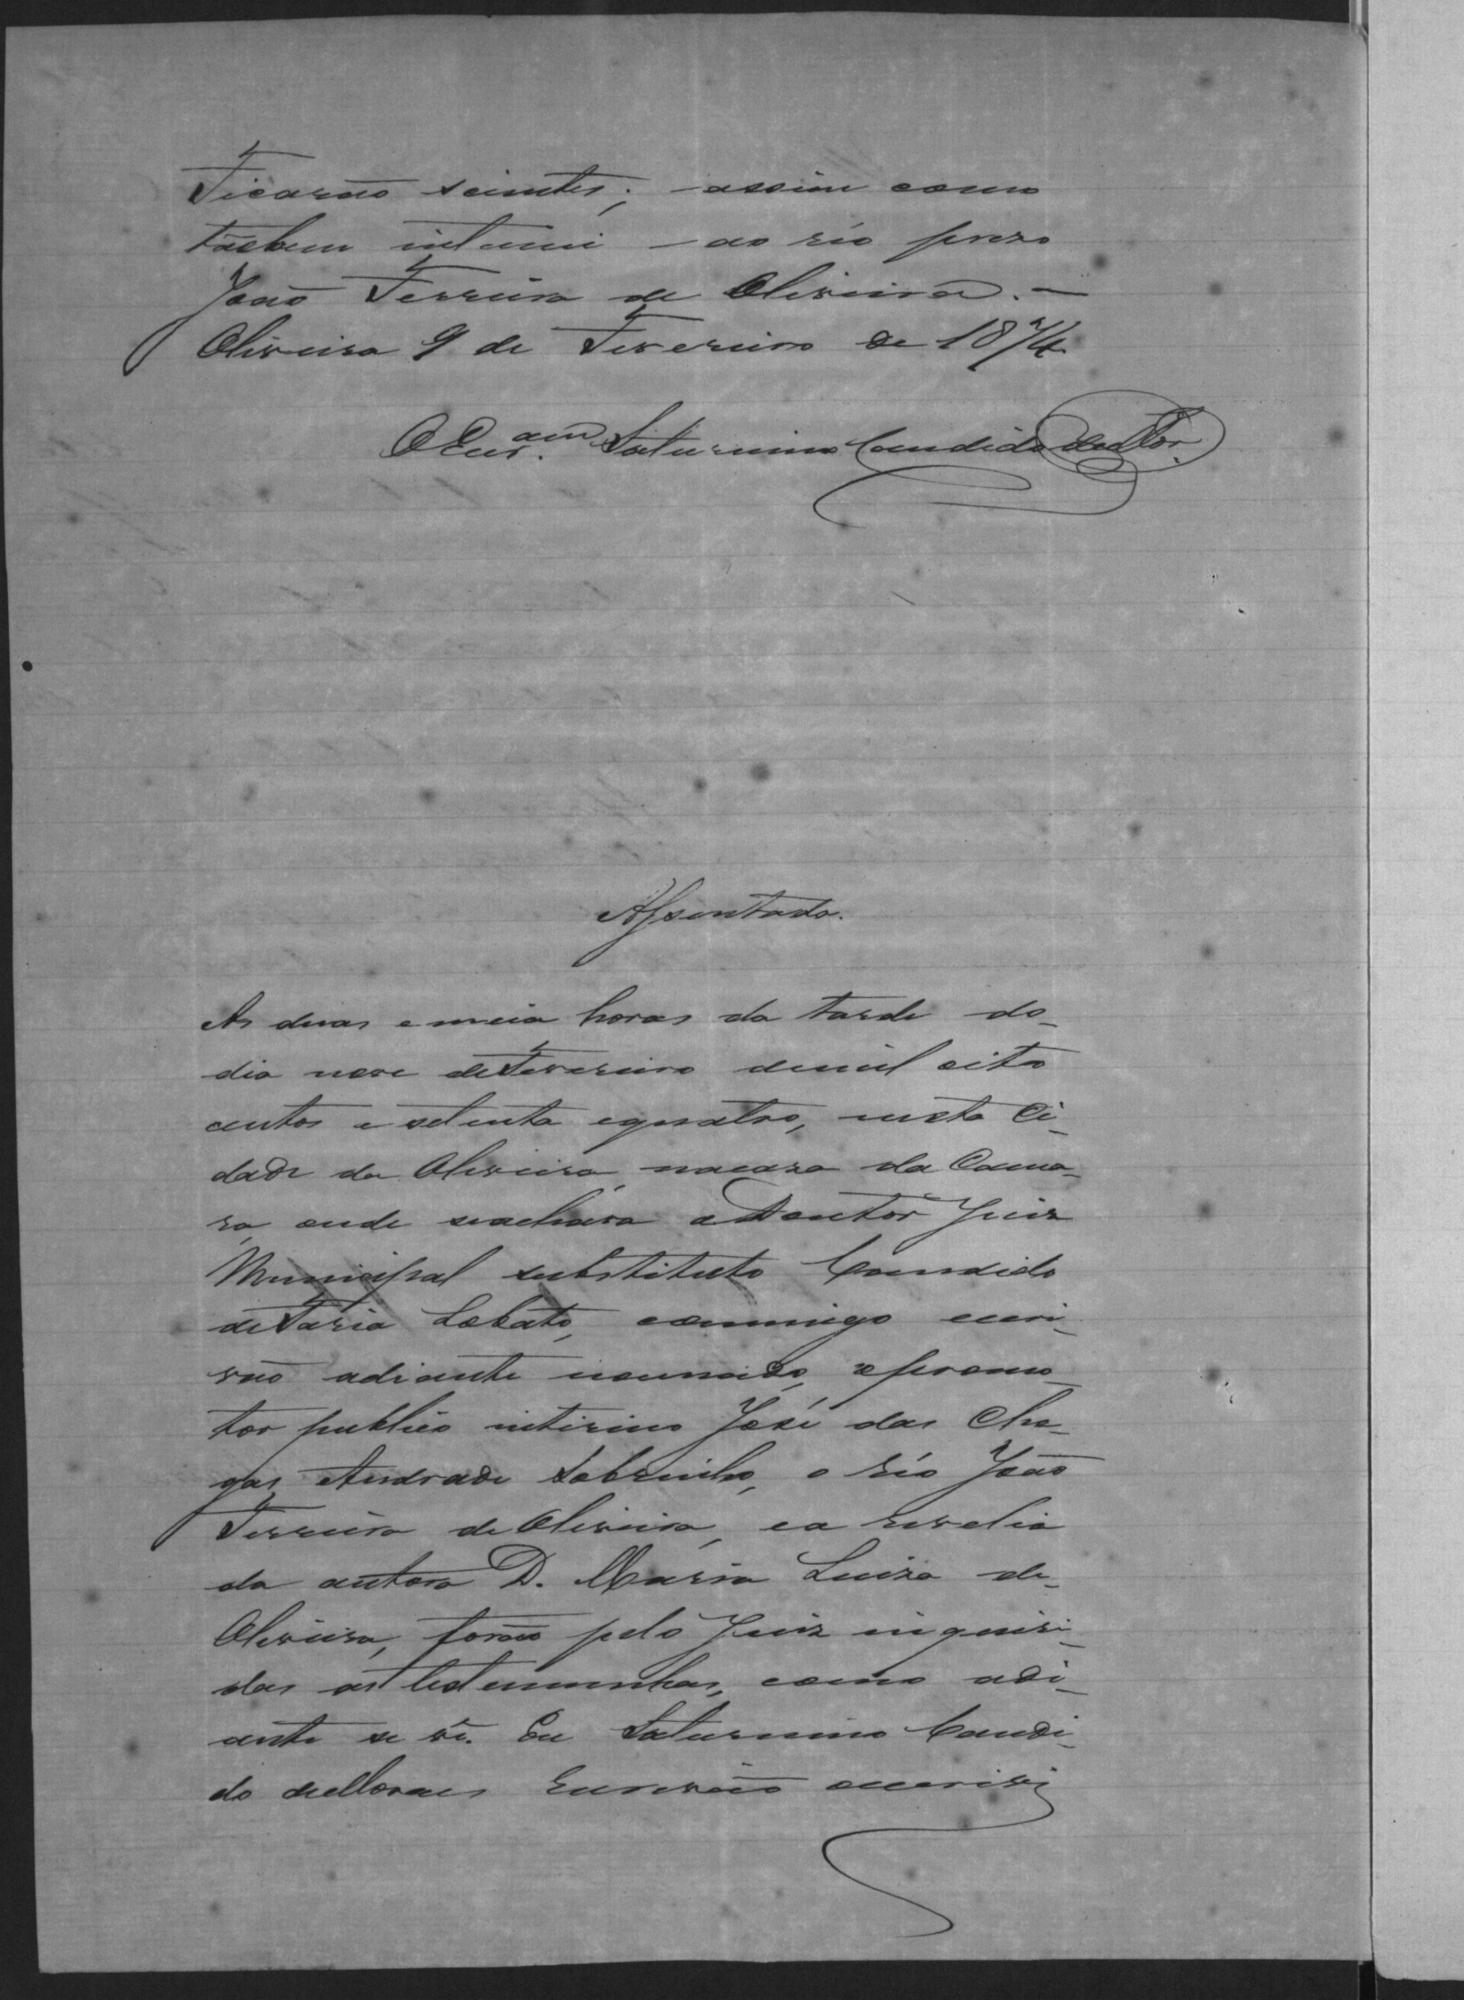 Ficarão scientes; assim como
tãobem intimei ao réo prezo
João Ferreira de Oliveira. —
Oliveira 9 de Fevereiro de 1874
O Escr.am Saturnino Candido de Mor.
Assentada.
As duas e meia horas da tarde do
dia nove de Fevereiro de mil oito
centos e setenta e quatro, nesta Ci-
dade da Oliveira, na caza da Cama-
ra, onde se achava o Doutor Juiz
Municipal substituto Candido
de Faria Lobato, commigo escri-
vão adiante nomeado, o promo-
tor publico interino José das Cha-
gas Andrade Sobrinho, o réo João
Ferreira de Oliveira, e a revelia
da autora D. Maria Luiza de
Oliveira, forão pelo Juiz inqueri-
das as testemunhas, como adi-
ante se vê. Eu Saturnino Candi-
do de Moraes Escrivão escrevi